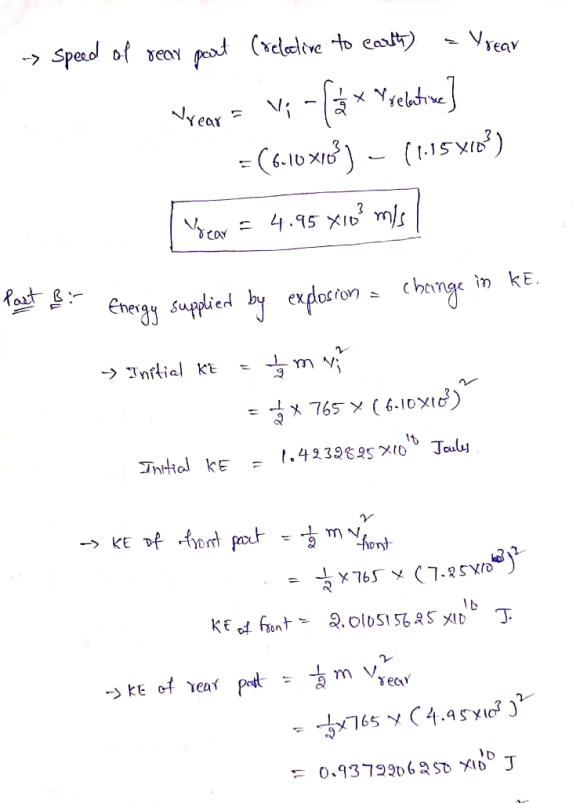 → Speed of rear part (relative to earth) = Vrear
Vrear = Vi - [1/2 × Vrelative]
= (6.10×10³) - (1.15×10³)
Vrear = 4.95 ×10³ m/s
Part B:- Energy supplied by explosion = change in KE.
→ Initial KE = 1/2 m Vi²
= 1/2 × 765 × (6.10×10³)²
Initial KE = 1.4232825×10¹⁰ Joules
→ KE of front part = 1/2 m V²front
= 1/2 × 765 × (7.25×10³)²
KE of front = 2.010515625 ×10¹⁰ J.
→ KE of rear part = 1/2 m V²rear
= 1/2×765 × (4.95×10³)²
= 0.9372206250 ×10¹⁰ J